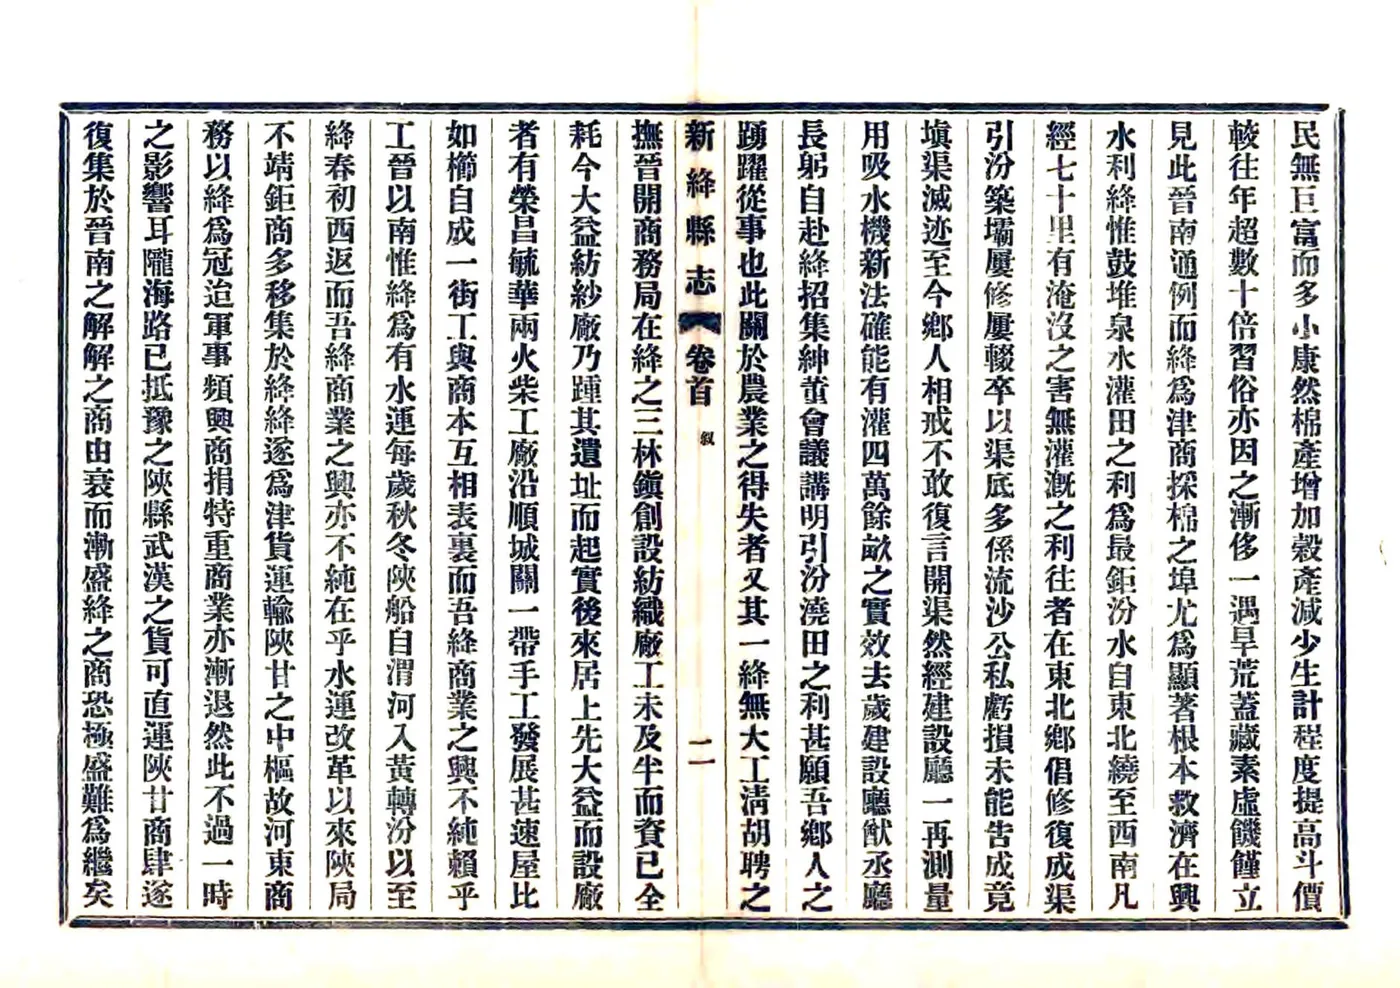 民無巨富而多小康然棉產增加穀產減少生計程度提高斗價
較往年超數十倍習俗亦因之漸侈一遇旱荒蓋藏素虛饑饉立
見此晉南通例而絳爲津商採棉之埠尤爲顯著根本救濟在興
水利絳惟鼓堆泉水灌田之利爲最鉅汾水自東北繞至西南凡
經七十里有淹沒之害無灌漑之利往者在東北鄉倡修復成渠
引汾築壩屢修屢輟卒以渠底多係流沙公私虧損未能告成竟
塡渠滅迹至今鄉人相戒不敢復言開渠然經建設廳一再測量
用吸水機新法確能有灌四萬餘畝之實效去歲建設廳猷丞廳
長躬自赴絳招集紳董會議講明引汾澆田之利甚願吾鄉人之
踴躍從事也此關於農業之得失者又其一絳無大工淸胡聘之
新絳縣志 卷首 叙 二
撫晉開商務局在絳之三林鎭創設紡織廠工未及半而資已全
耗今大益紡紗廠乃踵其遺址而起實後來居上先大益而設廠
者有榮昌毓華兩火柴工廠沿順城關一帶手工發展甚速屋比
如櫛自成一街工與商本互相表裏而吾絳商業之興不純賴乎
工晉以南惟絳爲有水運每歲秋冬陝船自渭河入黃轉汾以至
絳春初西返而吾絳商業之興亦不純在乎水運改革以來陝局
不靖鉅商多移集於絳絳遂爲津貨運輸陝甘之中樞故河東商
務以絳爲冠迨軍事頻興商捐特重商業亦漸退然此不過一時
之影響耳隴海路已抵豫之陝縣武漢之貨可直運陝甘商肆遂
復集於晉南之解解之商由衰而漸盛絳之商恐極盛難爲繼矣